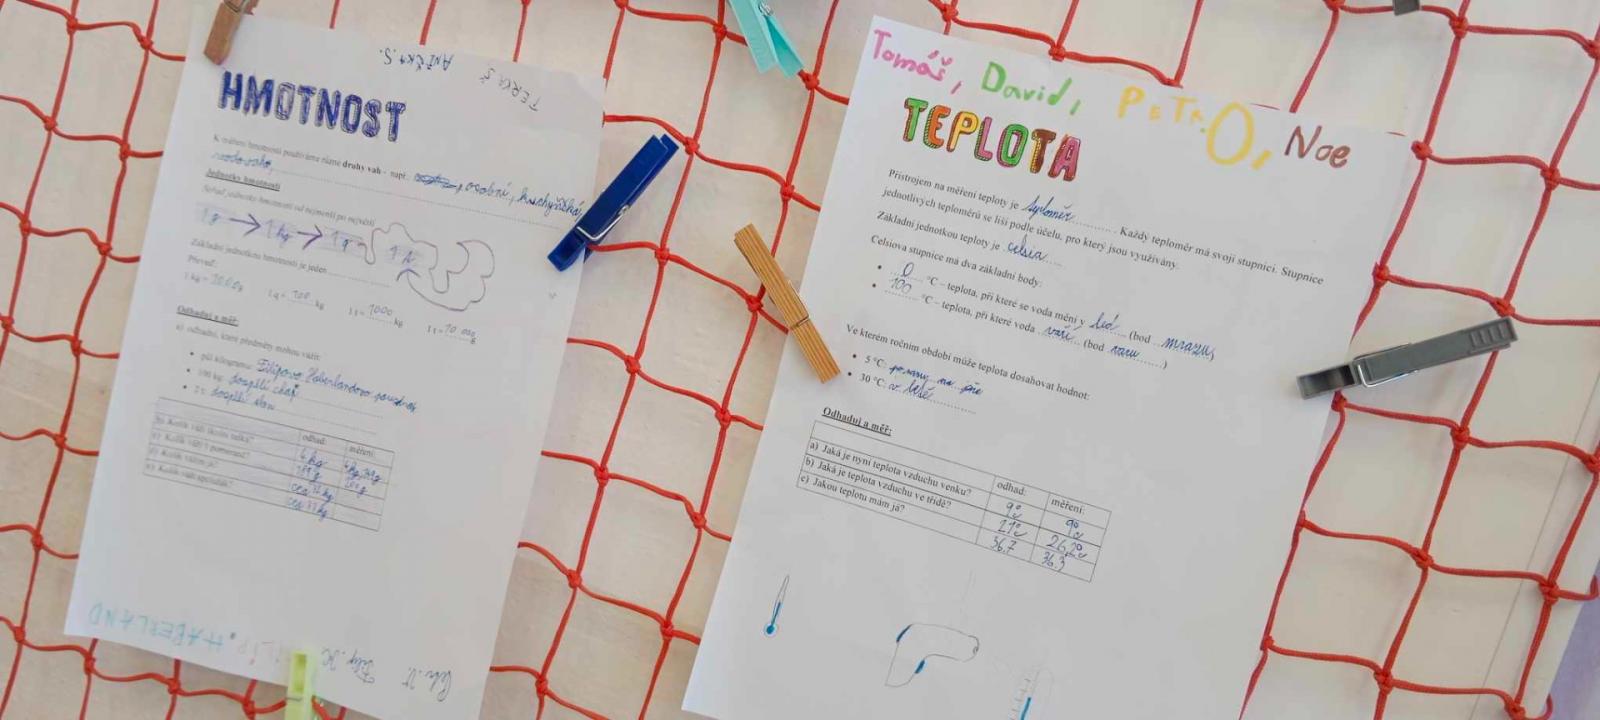 ANIČKA S.
TERKA Š
HMOTNOST
K měření hmotnosti používáme různé druhy vah - např. , osobní, kuchyňská,
vodováha
Jednotky hmotnosti
Seřaď jednotky hmotnosti od nejmenší po největší
1g → 1kg → 1q 1t
Základní jednotkou hmotnosti je jeden
Převeď:
1 kg = 1000g 1 q = 100 kg 1 t = 1000 kg 1 t = g
Odhaduj a měř:
a) odhadni, které předměty mohou vážit:
• půl kilogramu: Filipovo Haberlandovo
• 100 kg: dospělí chlap
• 2 t: dospělí slon
odhad: měření:
b) Kolik váží školní taška? 4 kg
c) Kolik váží pomeranč?
d) Kolik vážím já?
e) Kolik váží spolužák?
FILIP. HABERLAND
Filip. K
Tomáš, David, PETR.O, Noe
TEPLOTA
Přístrojem na měření teploty je teploměr. Každý teploměr má svoji stupnici. Stupnice
jednotlivých teploměrů se liší podle účelu, pro který jsou využívány.
Základní jednotkou teploty je celsia
Celsiova stupnice má dva základní body:
• 0 °C – teplota, při které se voda mění v led (bod mrazu)
• 100 °C – teplota, při které voda vaří (bod varu)
Ve kterém ročním období může teplota dosahovat hodnot:
• 5 °C: na
• 30 °C: v létě
Odhaduj a měř:
odhad: měření:
a) Jaká je nyní teplota vzduchu venku? 9° 9°
b) Jaká je teplota vzduchu ve třídě? 21° 26,2°
c) Jakou teplotu mám já? 36,7 36,3